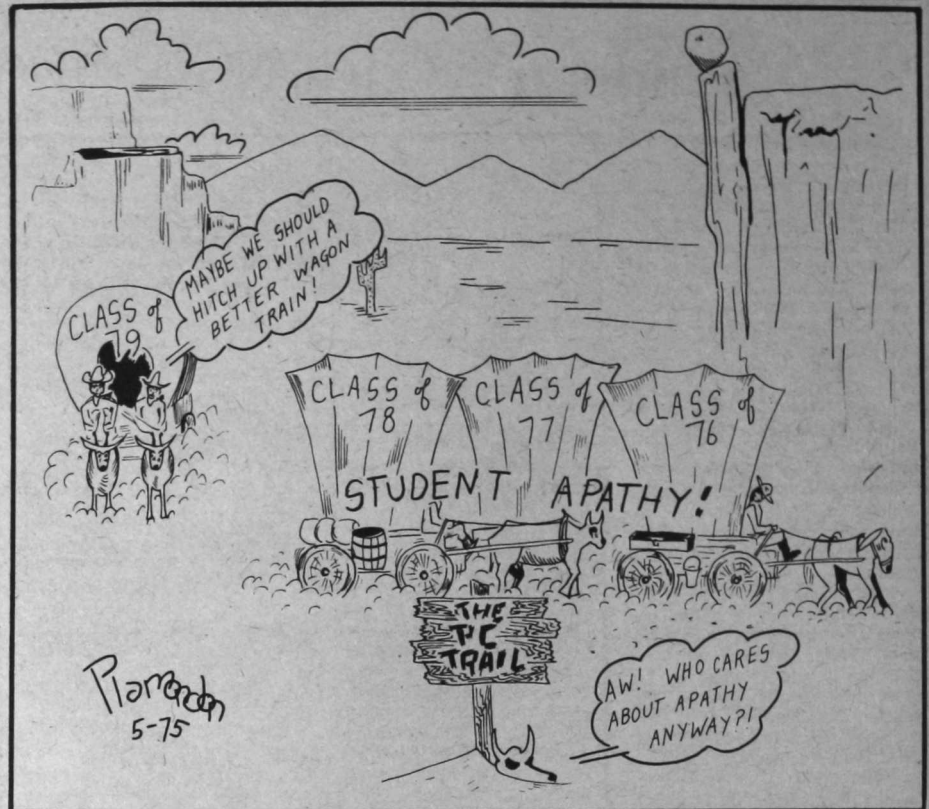 CLASS of
79
MAYBE WE SHOULD
HITCH UP WITH A
BETTER WAGON
TRAIN!
CLASS of
78
CLASS of
77
CLASS of
76
STUDENT APATHY!
THE
PC
TRAIL
AW! WHO CARES
ABOUT APATHY
ANYWAY?!
Plamondon
5-75